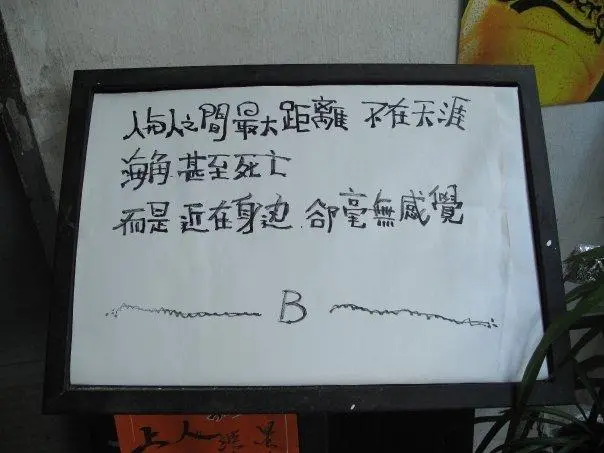 人与人之間最大距離 不在天涯
海角 甚至死亡
而是 近在身边 卻毫無感覺
B
上人